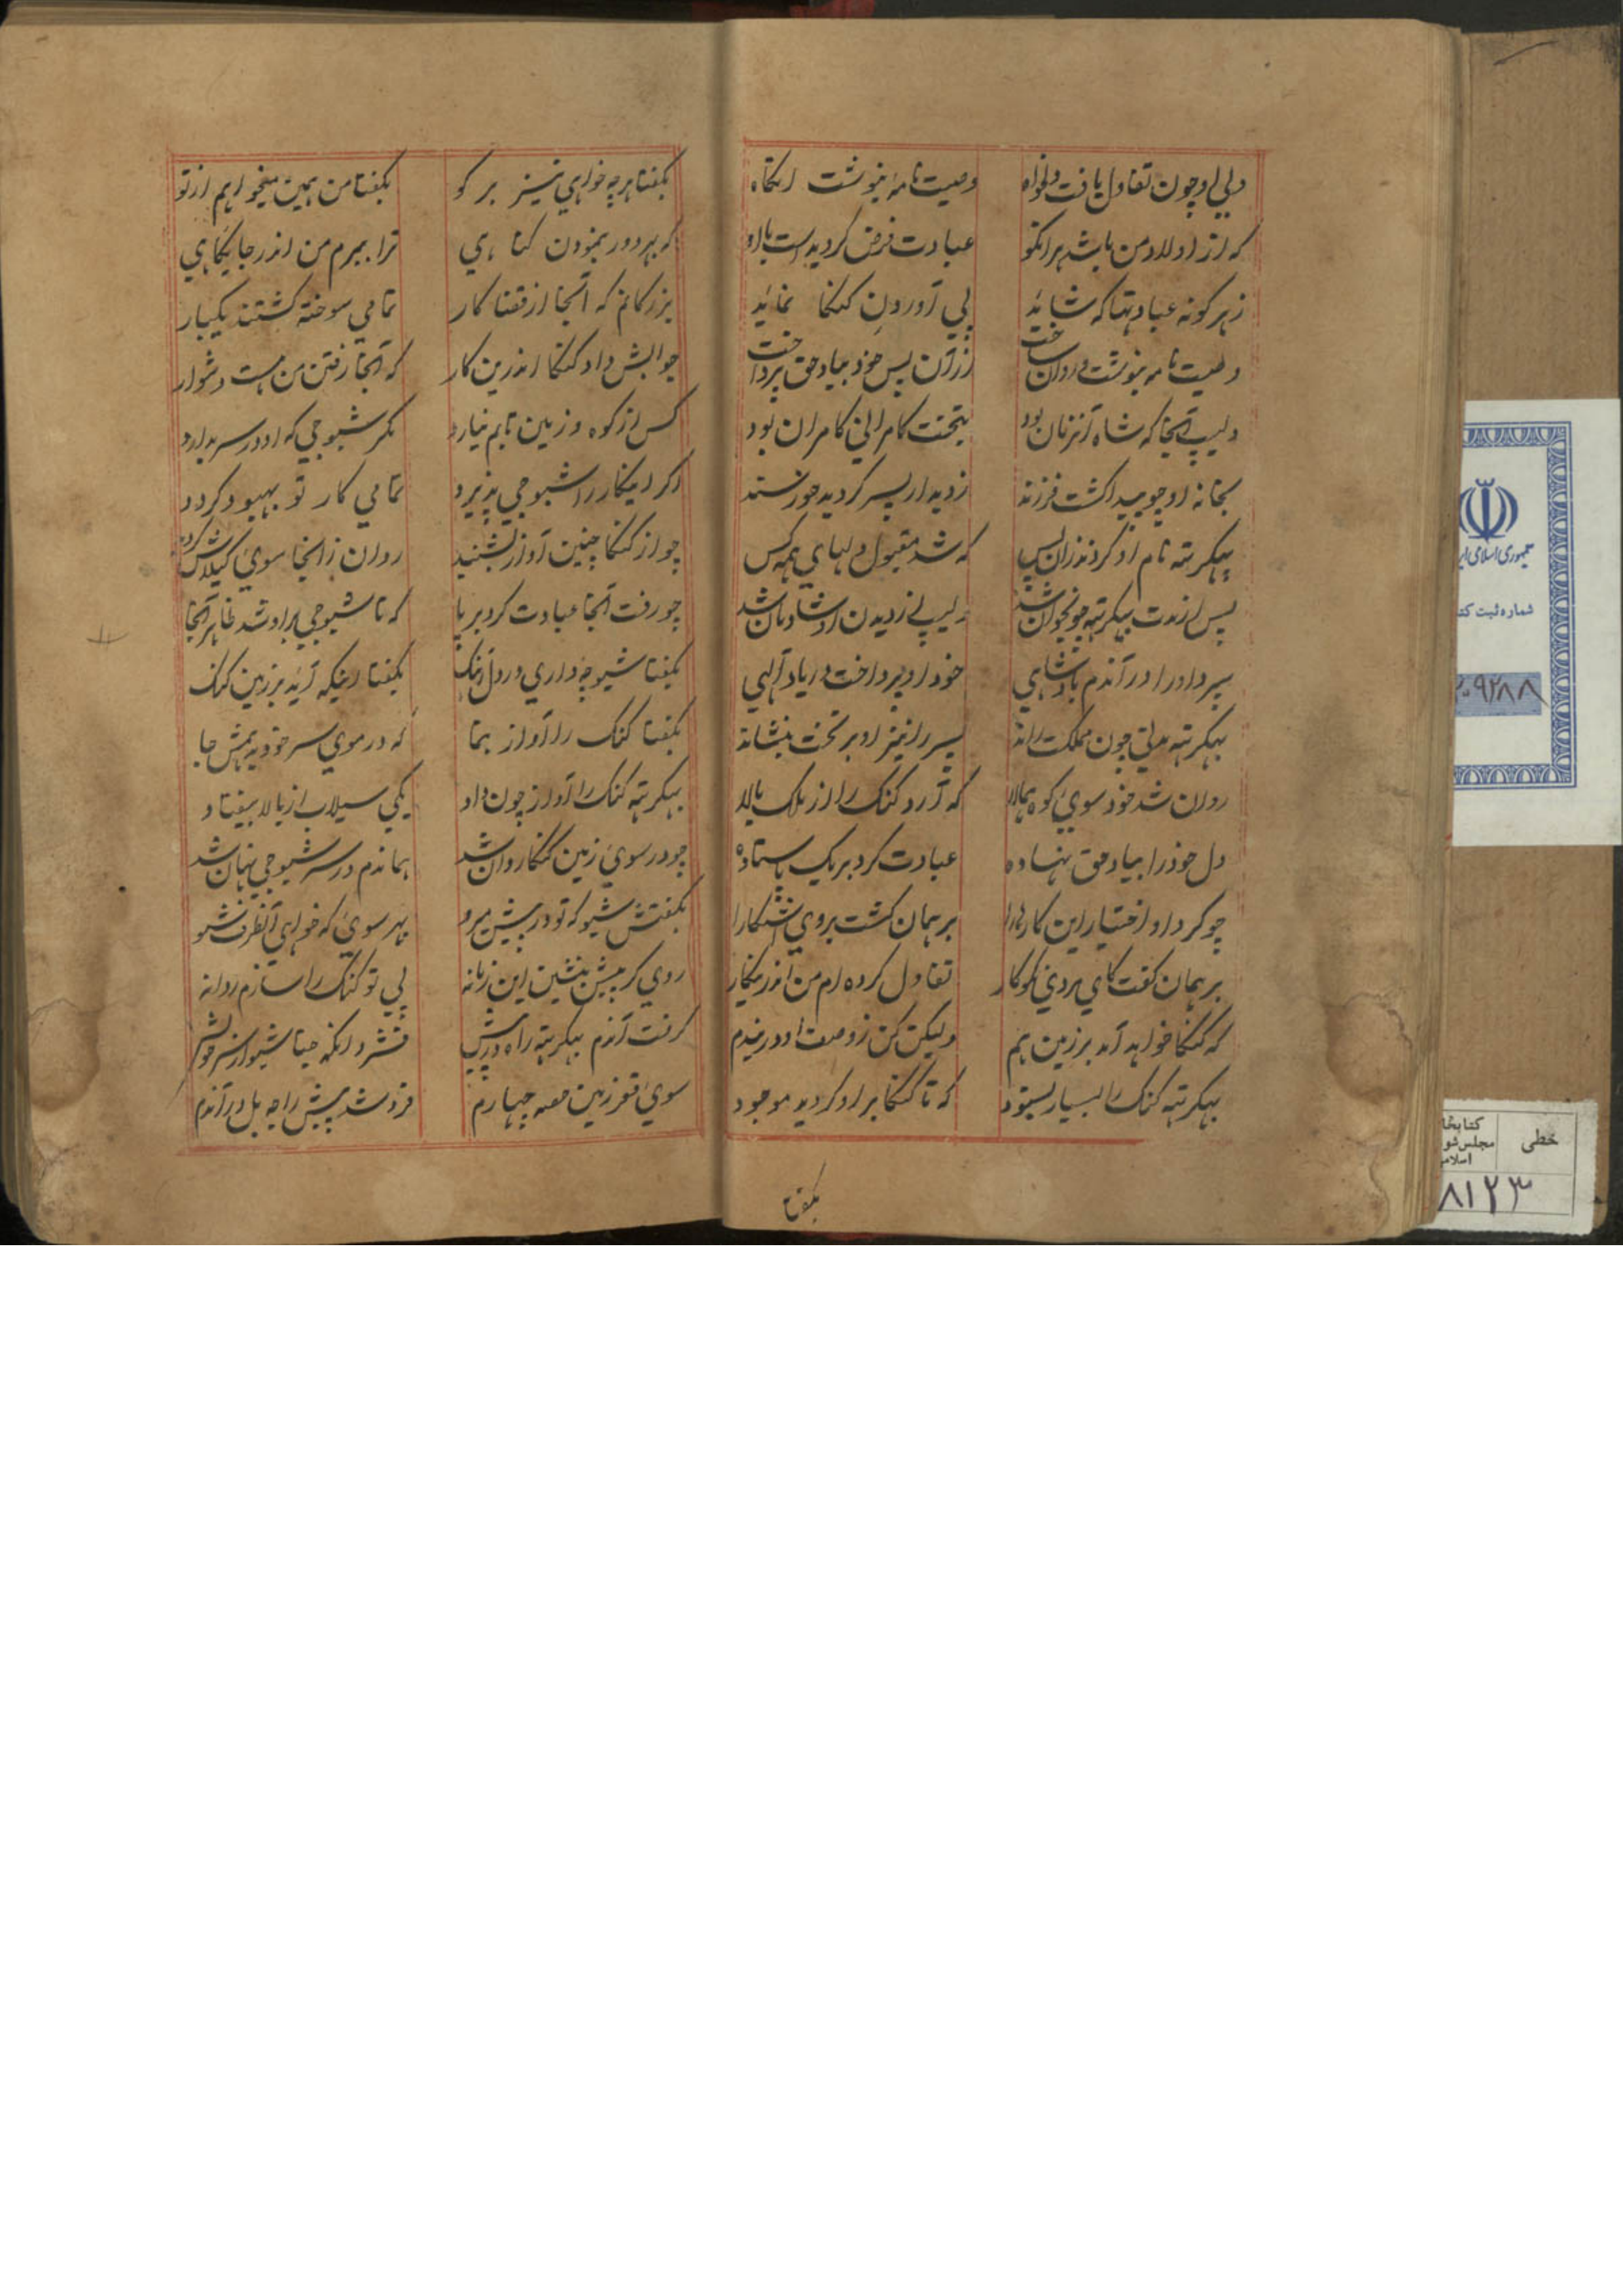 ولی او چون تفاول یافت دلخواه
وصیت نامه بنوشت آنگاه
که از اولاد من باشد هر آنکو
عبادت فرض گردیدست با او
ز هر گونه عبادتها که شاید
پی آوردن گنگا نماید
وصیت نامه بنوشت و روان ساخت
از آن پس خود بیاد حق پرداخت
دلیپ آنجا که شاه آنزمان بود
بتخت کامرانی کامران بود
بخانه او چو پیدا گشت فرزند
ز دیدار پسر گردید خورسند
بهگرته نام او کردند زان پس
که شد مقبول دلهای همه کس
پس از مدت بهگرته چو نجوان شد
دلیپ از دیدن او شادمان شد
سپرد او را در آندم بادشاهی
خود او پرداخت در یاد آلهی
بهگرته مدتی چون مملکت راند
پسر را نیز او بر تخت بنشاند
روان شد خود سوی کوه همالا
که آرد گنگ را از ملک بالا
دل خود را بیاد حق نهاده
عبادت کرد بر یک پا ستاده
چو کرد او اختیار این کارها را
برهمان گشت بروی آشکارا
برهمان گفت کای مرد نکوکار
تفاول کرده ام من اندرینکار
که گنگا خواهد آمد بر زمین هم
ولیکن کن ز وصف او دریندم
بهگرته گنگ را بسیار بستود
که تا گنگا بر او گردید موجود
بگفتا
بگفتا هر چه خواهی نیز بر گو
بگفتا من همین میخواهم از تو
که بهر دور بنمودن گناهی
ترا ببرم من اندر جایگاهی
بزرگانم که آنجا از قضا کار
تمامی سوخته گشتند یکبار
جوابش داد گنگا اندرین کار
که آنجا رفتن من هست دشوار
کس از کوه و زمین تابم نیارد
مگر شیوجی که او در سر بدارد
اگر اینکار را شیوجی پذیرد
تمامی کار تو بهبود گردد
چو از گنگا چنین آواز بشنید
روان ز آنجا سوی کیلاش گردید
چو رفت آنجا عبادت کرد بر پا
که تا شیوجی بر او شد ظاهر آنجا
بگفتا شیو چه داری در دل آهنگ
بگفتا اینکه آید بر زمین گنگ
بگفتا گنگ را آواز بنما
که در موی سر خود بدهمش جا
بهگرته گنگ را آواز چون داد
یکی سیلاب از بالا بیفتاد
چو در سوی زمین گنگا روان شد
هماندم در سر شیوجی نهان شد
بگفتش شیو که تو در پیش میرو
بهر سوی که خواهی آنطرف شو
روی گر پیش بنشین این زمانه
پی تو گنگ را سازم روانه
گرفت آندم بهگرته راه در پیش
فشرد آنگه جتا شیو از سر خویش
سوی قعر زمین حصه چهارم
فرو شد پیش راجه بل در آندم
جمهوری اسلامی ایر
شماره ثبت کت
۲۰۹۲۸۸
خطی
کتابخا
مجلس شو
اسلام
۸۱۲۳